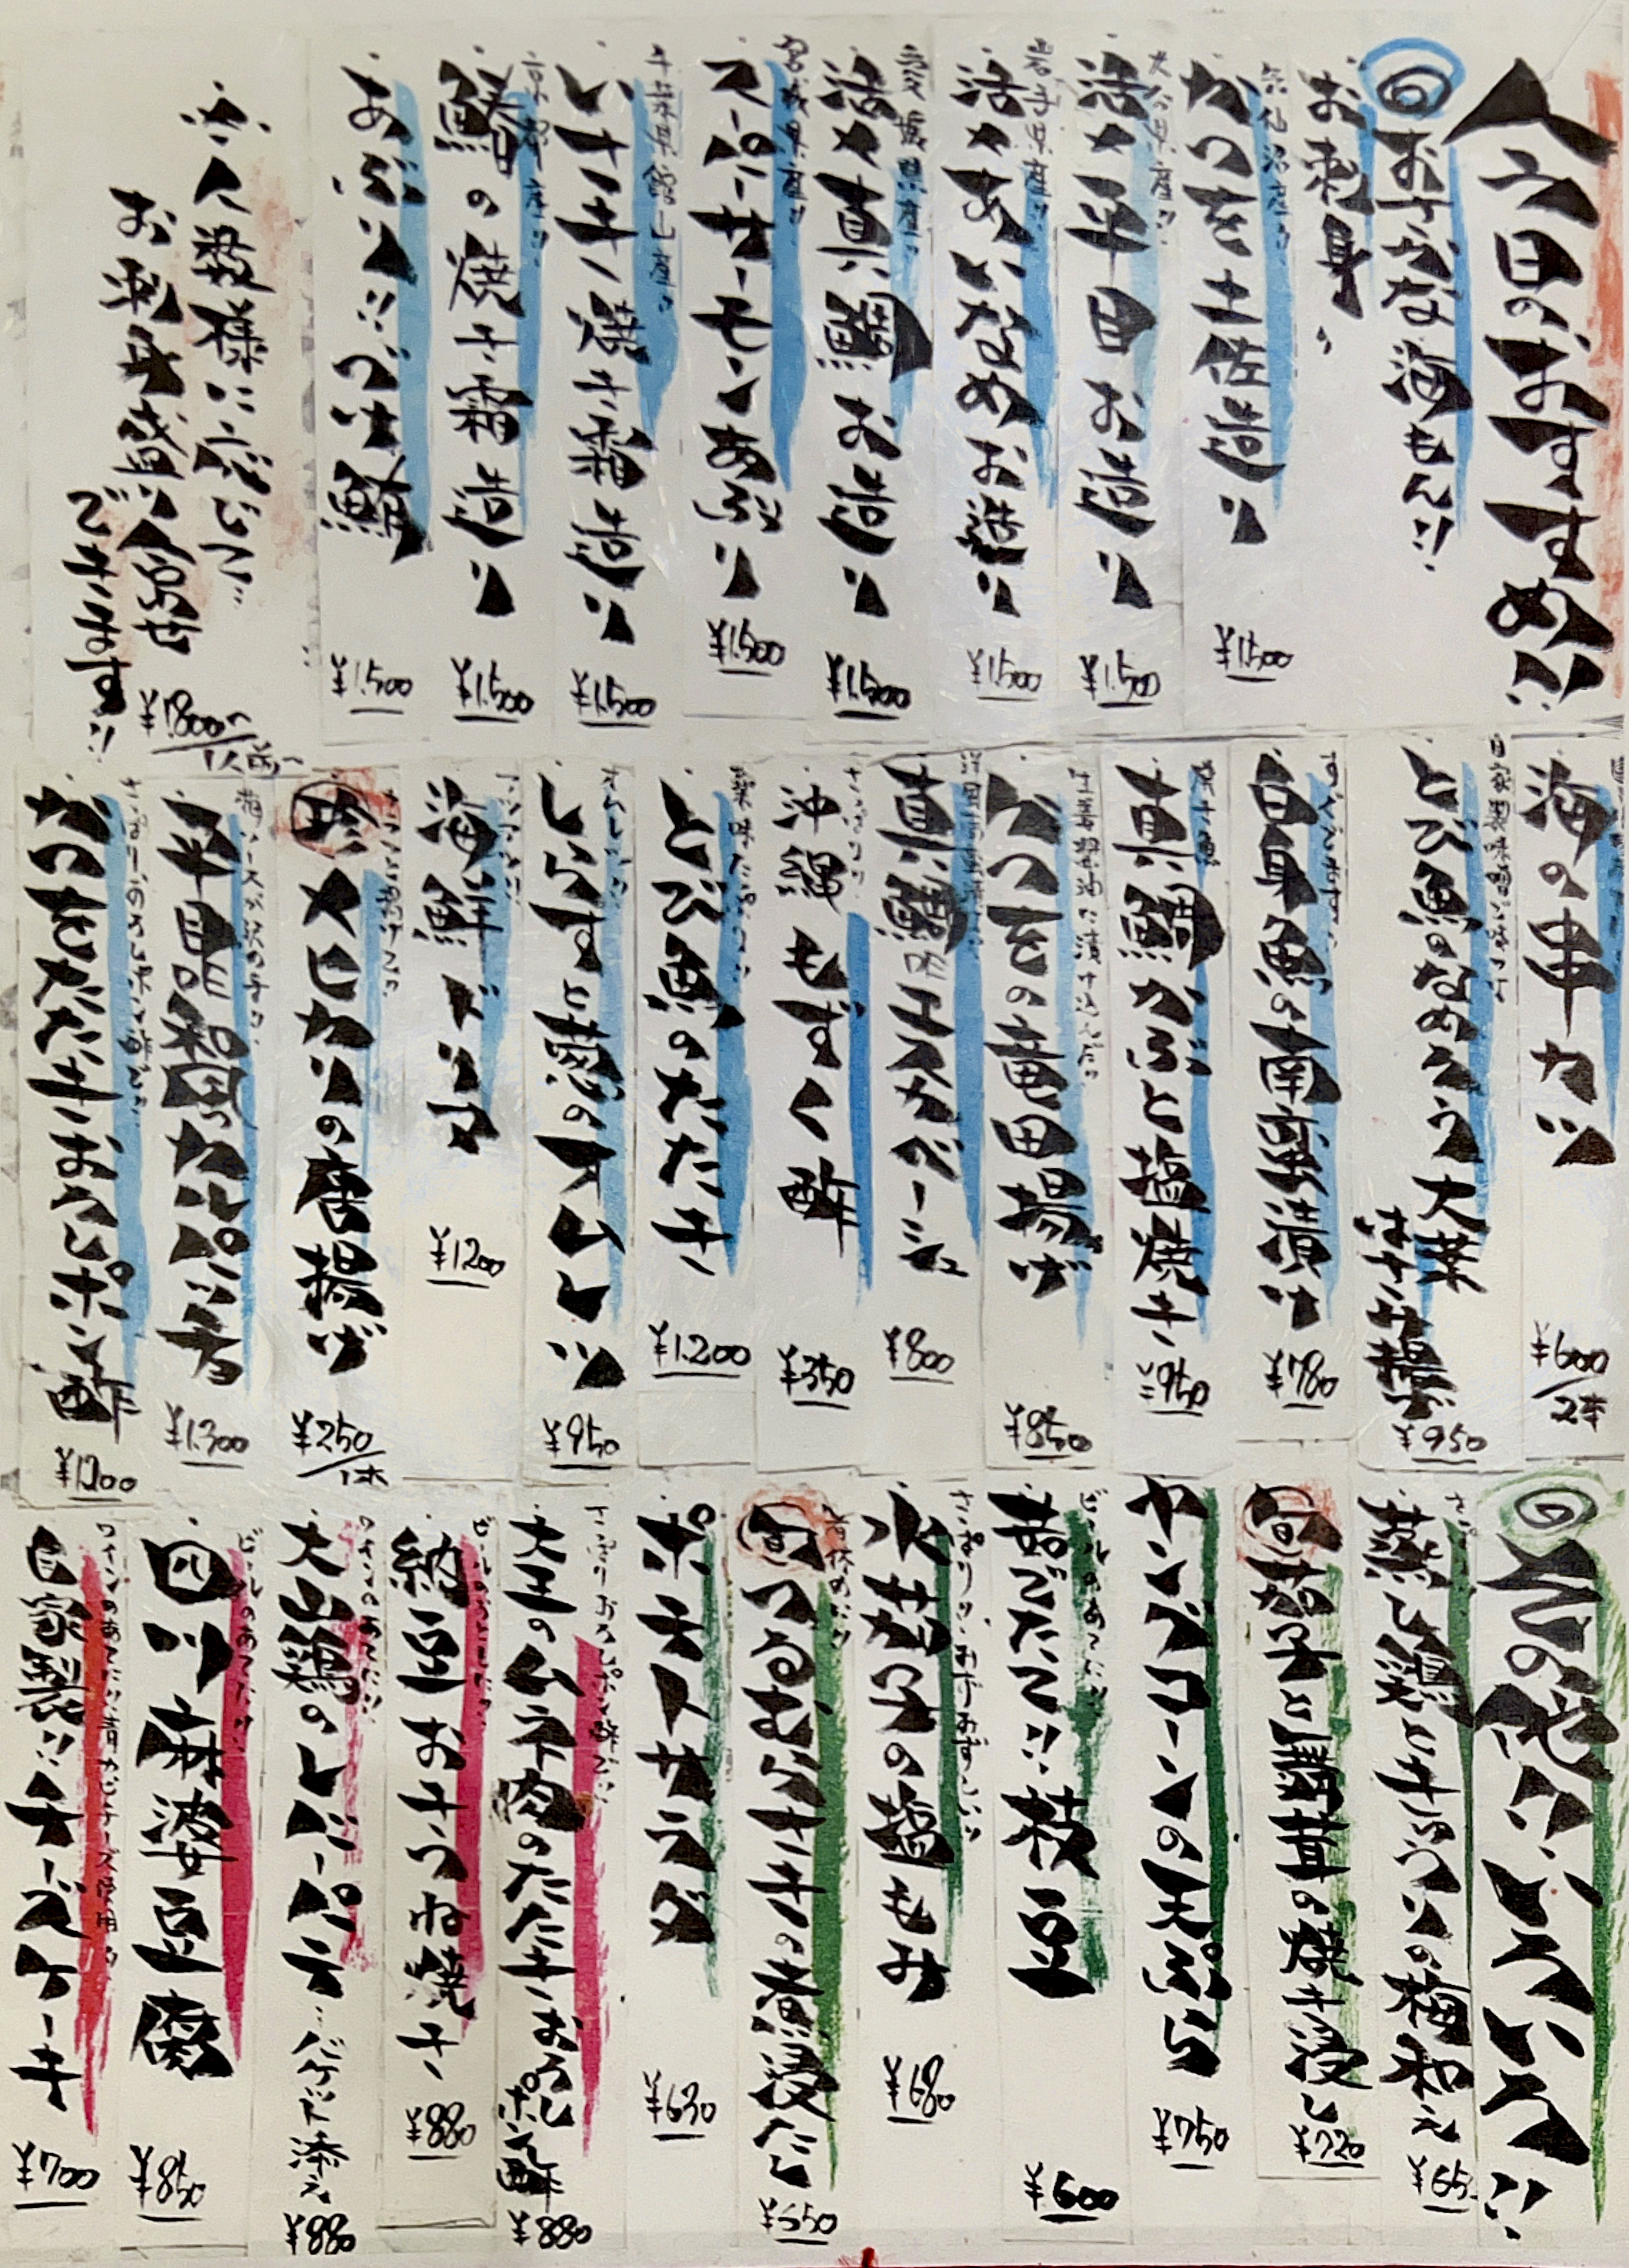 今日のおすすめ!!
おすすな海もん!!
お刺身、
気仙沼産!!
かつを土佐造り
¥1.500
大分県産!!
活〆平目お造り
¥1.500
岩手県産!!
活〆あいなめお造り
¥1.500
愛媛県産!!
活〆真鯛お造り
¥1.500
宮城県産!!
スーパーサーモンあぶり
¥1.500
千葉県館山産!!
いさき焼き霜造り
¥1.500
京都産!!
鰆の焼き霜造り
¥1.500
あぶり!!づけ鮪
¥1.500
人数様に応じて…
お刺身盛り合せ
できます!!
¥1.800〜/1人前〜
海の串カツ
¥600/2本
とび魚のなめろう大葉
はさみ揚げ
¥950
白身魚の南蛮漬け
¥780
真鯛かぶと塩焼き
¥950
生姜醤油に漬け込んだ!!
かつをの竜田揚げ
¥850
真鯛のエスカベーシュ
¥800
さっぱり!!
沖縄もずく酢
¥350
薬味たっぷり!!
とび魚のたたき
¥1.200
しらすと葱のオムレツ
¥950
海鮮トリア
¥1200
珍 メヒカリの唐揚げ
¥250/1本
平目昆布〆カルパッチョ
¥1.300
かつをたたきおろしポン酢
¥1200
その他いろいろ!!
蒸し鶏ときゅうりの梅和え
¥65
旬 茄子と舞茸の焼き浸し
¥720
ヤングコーンの天ぷら
¥750
ビールのあてに!!
茹でたて!!枝豆
¥600
水茄子の塩もみ
¥680
旬 つるむらさきの煮浸たし
¥550
ポテトサラダ
¥630
さっぱりおろしポン酢で!!
大王のムネ肉のたたきおろし
ポン酢
¥880
納豆おきつね焼き
¥880
ワインのあてに!!
大山鶏のレバーパテ…バケット添え
¥880
ビールのあてに!!
四川麻婆豆腐
¥850
ワインのあてに!!青カビチーズ使用!!
自家製!!チーズケーキ
¥700